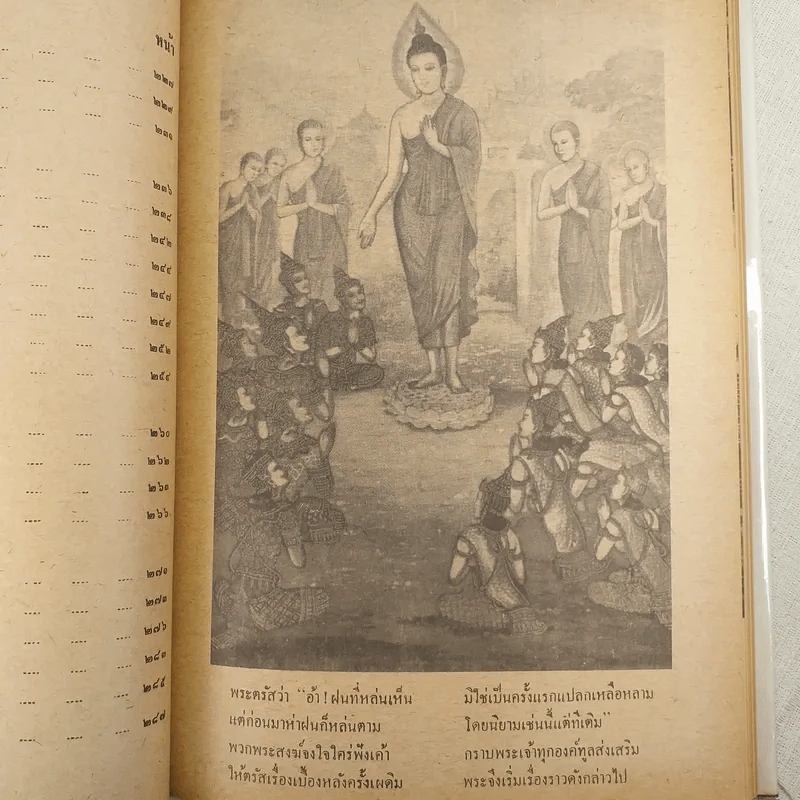 หน้า
๒๒๗
๒๒๙
๒๓๑
๒๓๖
๒๓๘
๒๔๒
๒๔๔
๒๔๗
๒๔๙
๒๕๒
๒๕๔
๒๖๐
๒๖๒
๒๖๓
๒๖๖
๒๗๑
๒๗๓
๒๗๖
๒๘๓
๒๘๕
๒๘๗
พระตรัสว่า “อ้า ! ฝนที่หล่นเห็น มิใช่เป็นครั้งแรกแปลกเหลือหลาม
แต่ก่อนมาห่าฝนก็หล่นตาม โดยนิยามเช่นนี้แต่ทีเดิม”
พวกพระสงฆ์จงใจใคร่ฟังเค้า กราบพระเจ้าทุกองค์ทูลส่งเสริม
ให้ตรัสเรื่องเบื้องหลังครั้งเผดิม พระจึงเริ่มเรื่องราวดังกล่าวไป